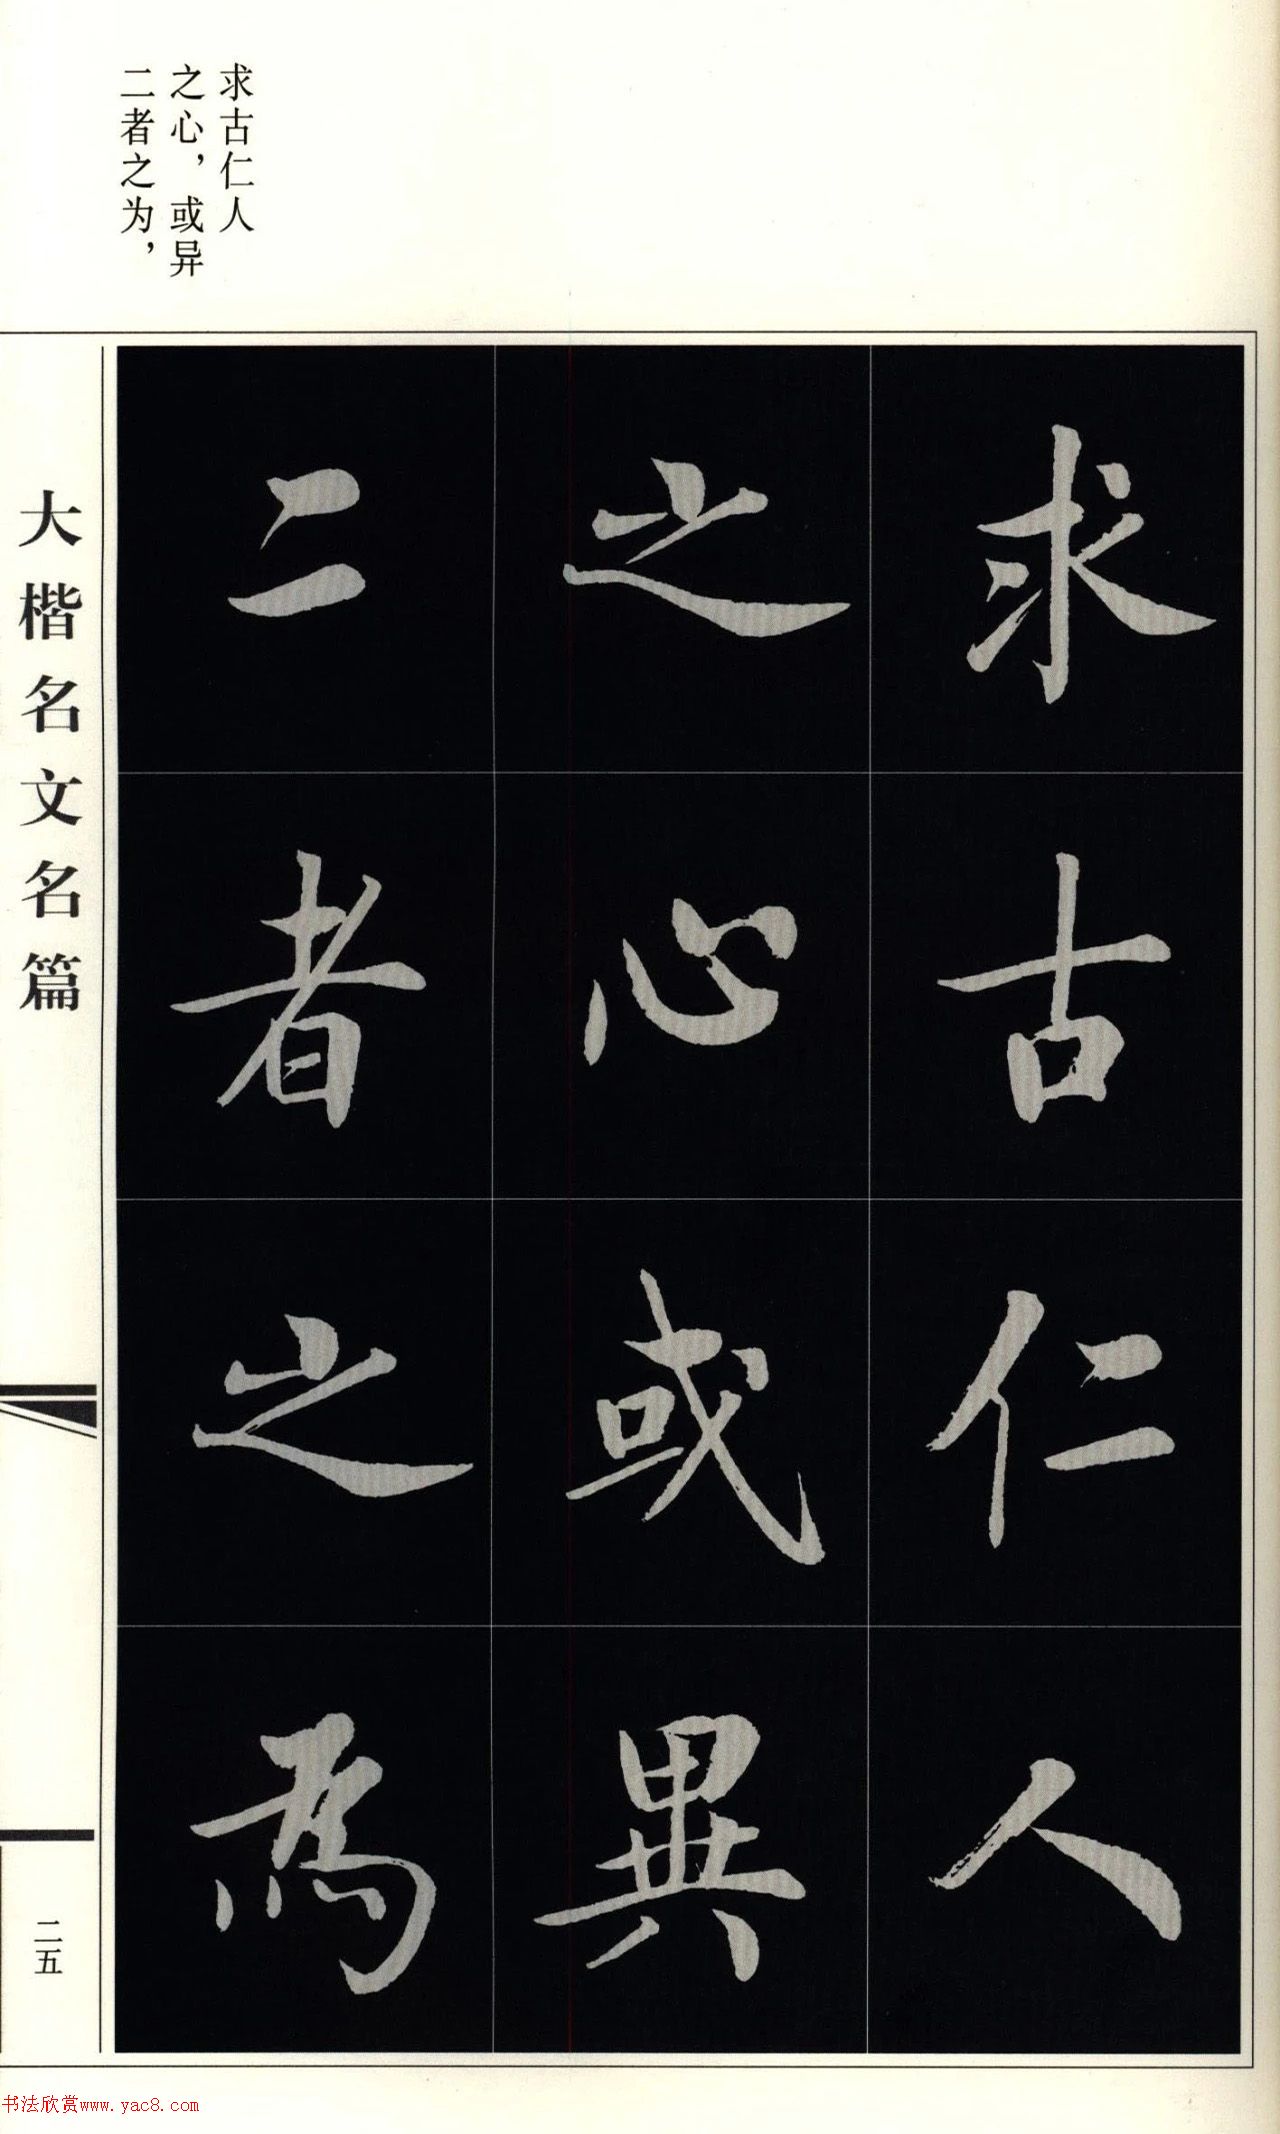 求古仁人
之心，或异
二者之为，
求古仁人
之心或異
二者之為
大楷名文名篇
二五
书法欣赏www.yac8.com